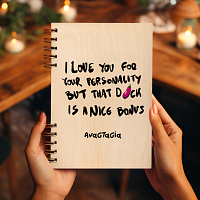 I LOVE YOU FOR
YOUR PERSONALITY
BUT THAT D CK
IS A NICE BONUS
AVAGTAGIA